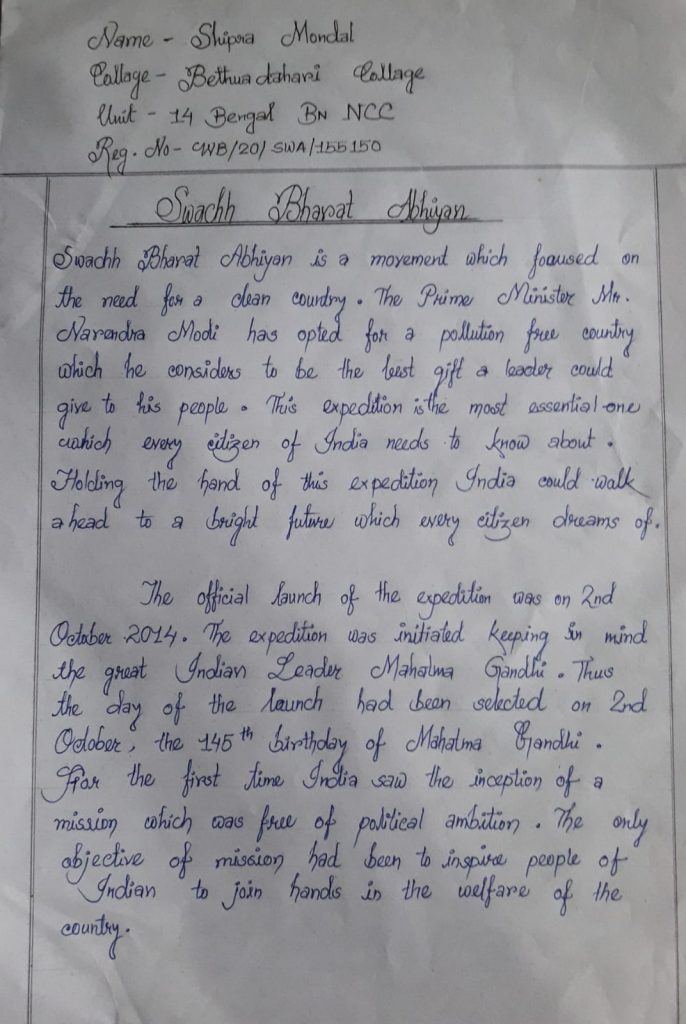 Name - Shipra Mondal
Collage - Bethuadahari Collage
Unit - 14 Bengal BN NCC
Reg. No - WB/20/SWA/155150
Swachh Bharat Abhiyan
Swachh Bharat Abhiyan is a movement which focused on
the need for a clean country. The Prime Minister Mr.
Narendra Modi has opted for a pollution free country
which he considers to be the best gift a leader could
give to his people. This expedition is the most essential one
which every citizen of India needs to know about.
Holding the hand of this expedition India could walk
ahead to a bright future which every citizen dreams of.
The official launch of the expedition was on 2nd
October 2014. The expedition was initiated keeping in mind
the great Indian Leader Mahatma Gandhi. Thus
the day of the launch had been selected on 2nd
October, the 145th birthday of Mahatma Gandhi.
For the first time India saw the inception of a
mission which was free of political ambition. The only
objective of mission had been to inspire people of
Indian to join hands in the welfare of the
country.